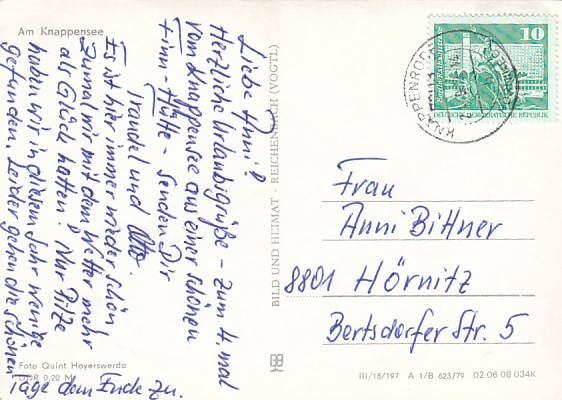 Am Knappensee
Liebe Anni!
Herzliche Urlaubsgrüße – zum 4. mal
vom Knappensee aus einer schönen
Finn-Hütte – senden Dir
Traudel und Otto.
Es ist hier immer wieder schön
Zumal wir mit dem Wetter mehr
als Glück hatten! Nur Pilze
haben wir in diesem Jahr wenige
gefunden. Leider gehen die schönen
Tage dem Ende zu.
Foto Quint Hoyerswerda
DDR 0,20 M
BILD UND HEIMAT · REICHENBACH (VOGTL)
10
DEUTSCHE DEMOKRATISCHE REPUBLIK
KNAPPENRODE
Frau
Anni Bittner
8801 Hörnitz
Bertsdorfer Str. 5
III/18/197 A 1/B 623/79 02 06 08 034K